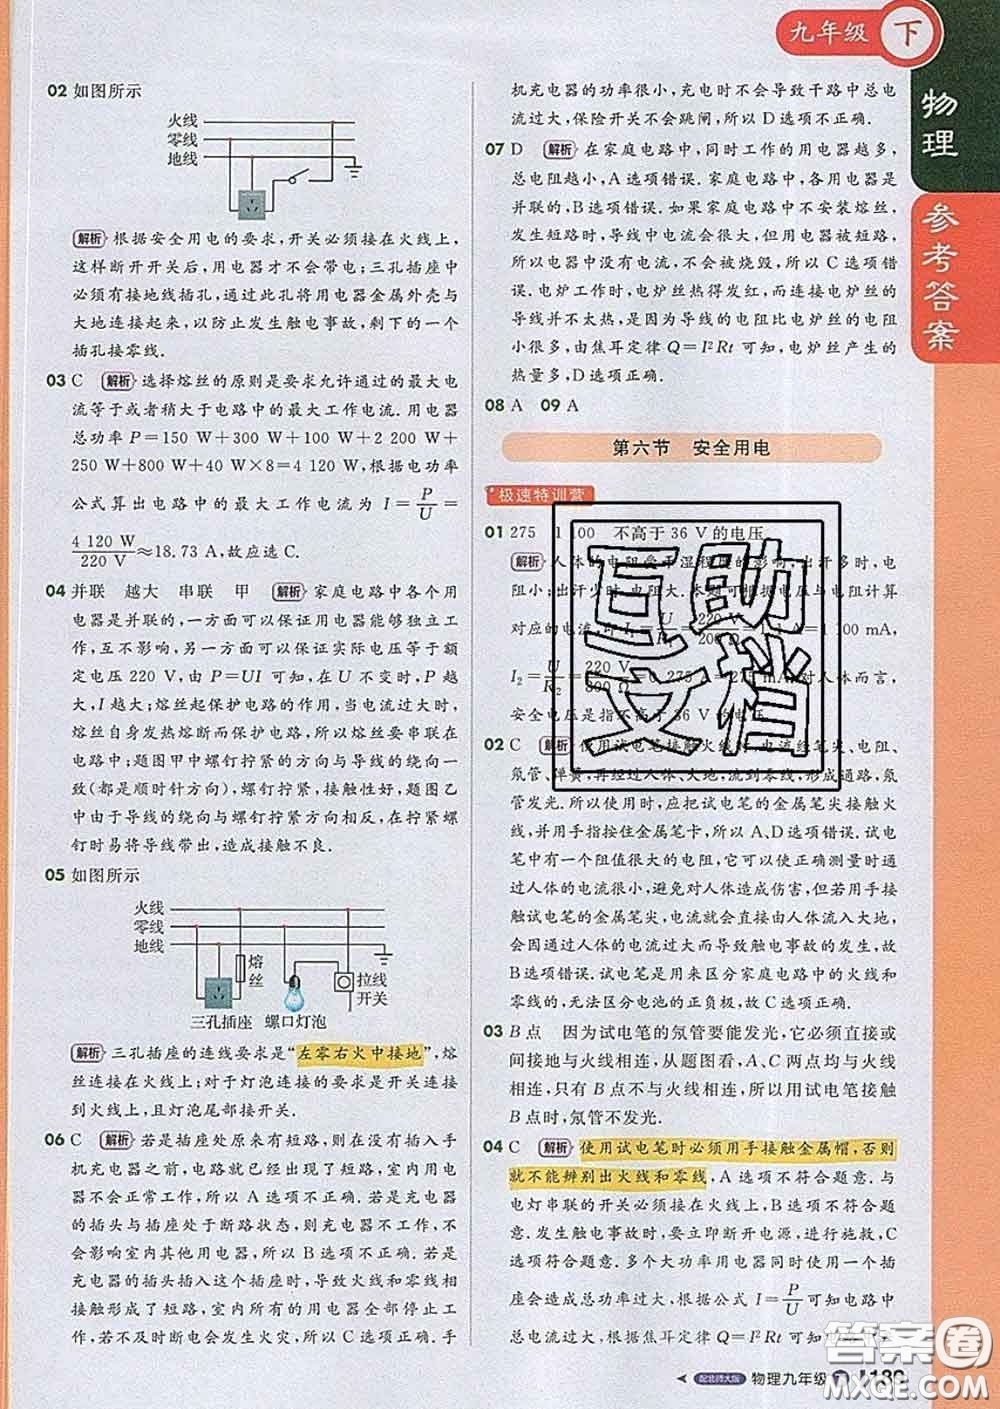 九年级 下
物理
参考答案
02 如图所示
火线
零线
地线
解析 根据安全用电的要求,开关必须接在火线上,
这样断开开关后,用电器才不会带电;三孔插座中
必须有接地线插孔,通过此孔将用电器金属外壳与
大地连接起来,以防止发生触电事故,剩下的一个
插孔接零线.
03 C 解析 选择熔丝的原则是要求允许通过的最大电
流等于或者稍大于电路中的最大工作电流.用电器
总功率 P=150 W+300 W+100 W+2 200 W+
250 W+800 W+40 W×8=4 120 W,根据电功率
公式算出电路中的最大工作电流为 I=P/U=
4 120 W/220 V≈18.73 A,故应选 C.
04 并联 越大 串联 甲 解析 家庭电路中各个用
电器是并联的,一方面可以保证用电器能够独立工
作,互不影响,另一方面可以保证实际电压等于额
定电压 220 V,由 P=UI 可知,在 U 不变时,P 越
大,I 越大;熔丝起保护电路的作用,当电流过大时,
熔丝自身发热熔断而保护电路,所以熔丝要串联在
电路中;题图甲中螺钉拧紧的方向与导线的绕向一
致(都是顺时针方向),螺钉拧紧,接触性好,题图乙
中由于导线的绕向与螺钉拧紧方向相反,在拧紧螺
钉时易将导线带出,造成接触不良.
05 如图所示
火线
零线
地线
熔丝
拉线开关
三孔插座 螺口灯泡
解析 三孔插座的连线要求是“左零右火中接地”,熔
丝连接在火线上;对于灯泡连接的要求是开关连接
到火线上,且灯泡尾部接开关.
06 C 解析 若是插座处原来有短路,则在没有插入手
机充电器之前,电路已经出现了短路,室内用电
器不会正常工作,所以 A 选项不正确.若是充电器
的插头与插座处于断路状态,则充电器不工作,不
会影响室内其他用电器,所以 B 选项不正确.若是
充电器的插头插入这个插座时,导致火线和零线相
接触形成了短路,室内所有的用电器全部停止工
作,若不及时断电会发生火灾,所以 C 选项正确.手
机充电器的功率很小,充电时不会导致干路中总电
流过大,保险开关不会跳闸,所以 D 选项不正确.
07 D 解析 在家庭电路中,同时工作的用电器越多,
总电阻越小,A 选项错误.家庭电路中,各用电器是
并联的,B 选项错误.如果家庭电路中不安装熔丝,
发生短路时,导线中电流会很大,但用电器被短路,
所以用电器中没有电流,不会被烧毁,所以 C 选项错
误.电炉工作时,电炉丝热得发红,而连接电炉丝的
导线并不太热,是因为导线的电阻比电炉丝的电阻
小很多,由焦耳定律 Q=I²Rt 可知,电炉丝产生的
热量多,D 选项正确.
08 A 09 A
第六节 安全用电
极速特训营
01 275 1 100 不高于 36 V 的电压
解析 人体的电阻受干湿程度的影响,出汗多时,电
阻小;出汗少时,电阻大.本题可根据电压与电阻计算
对应的电流,可 I₁=U/R₁=220 V/200 Ω=1.1 A=1 100 mA,
I₂=U/R₂=220 V/800 Ω=0.275 A=275 mA.对人体而言,
安全电压是指不高于 36 V 的电压.
02 C 解析 使用试电笔接触火线时,电流经笔尖、电阻、
氖管、弹簧,再经过人体、大地,流到零线,形成通路,氖
管发光.所以使用时,应把试电笔的金属笔尖接触火
线,并用手指按住金属笔卡,所以 A、D 选项错误.试电
笔中有一个阻值很大的电阻,它可以使正确测量时通过
人体的电流很小,避免对人体造成伤害,但若用手接
触试电笔的金属笔尖,电流就会直接由人体流入大地,
会因通过人体的电流过大而导致触电事故的发生,故
B 选项错误.试电笔是用来区分家庭电路中的火线和
零线的,无法区分电池的正负极,故 C 选项正确.
03 B 点 因为试电笔的氖管要能发光,它必须直接或
间接地与火线相连,从题图看,A、C 两点均与火线
相连,只有 B 点不与火线相连,所以用试电笔接触
B 点时,氖管不发光.
04 C 解析 使用试电笔时必须用手接触金属帽,否则
就不能辨别出火线和零线,A 选项不符合题意.与
电灯串联的开关必须接在火线上,B 选项不符合题
意.发生触电事故时,要立即断开电源,进行施救,C
选项符合题意.多个大功率用电器同时使用一个插
座会造成总功率过大,根据公式 I=P/U可知电路中
总电流过大,根据焦耳定律 Q=I²Rt 可知
配北师大版 物理九年级 下 189
互助文档
答案圈
MXQE.COM